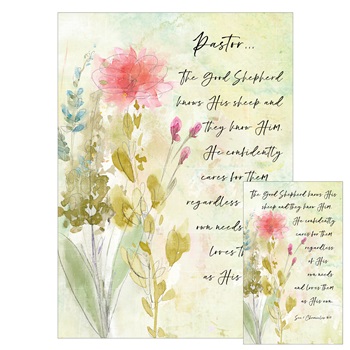 Pastor...
The Good Shepherd
knows His sheep and
they know Him.
He confidently
cares for them
regardless
own needs
loves th
as His
The Good Shepherd knows His
sheep and they know Him.
He confidently
cares for them
regardless
of His
own needs
and loves them
as His own.